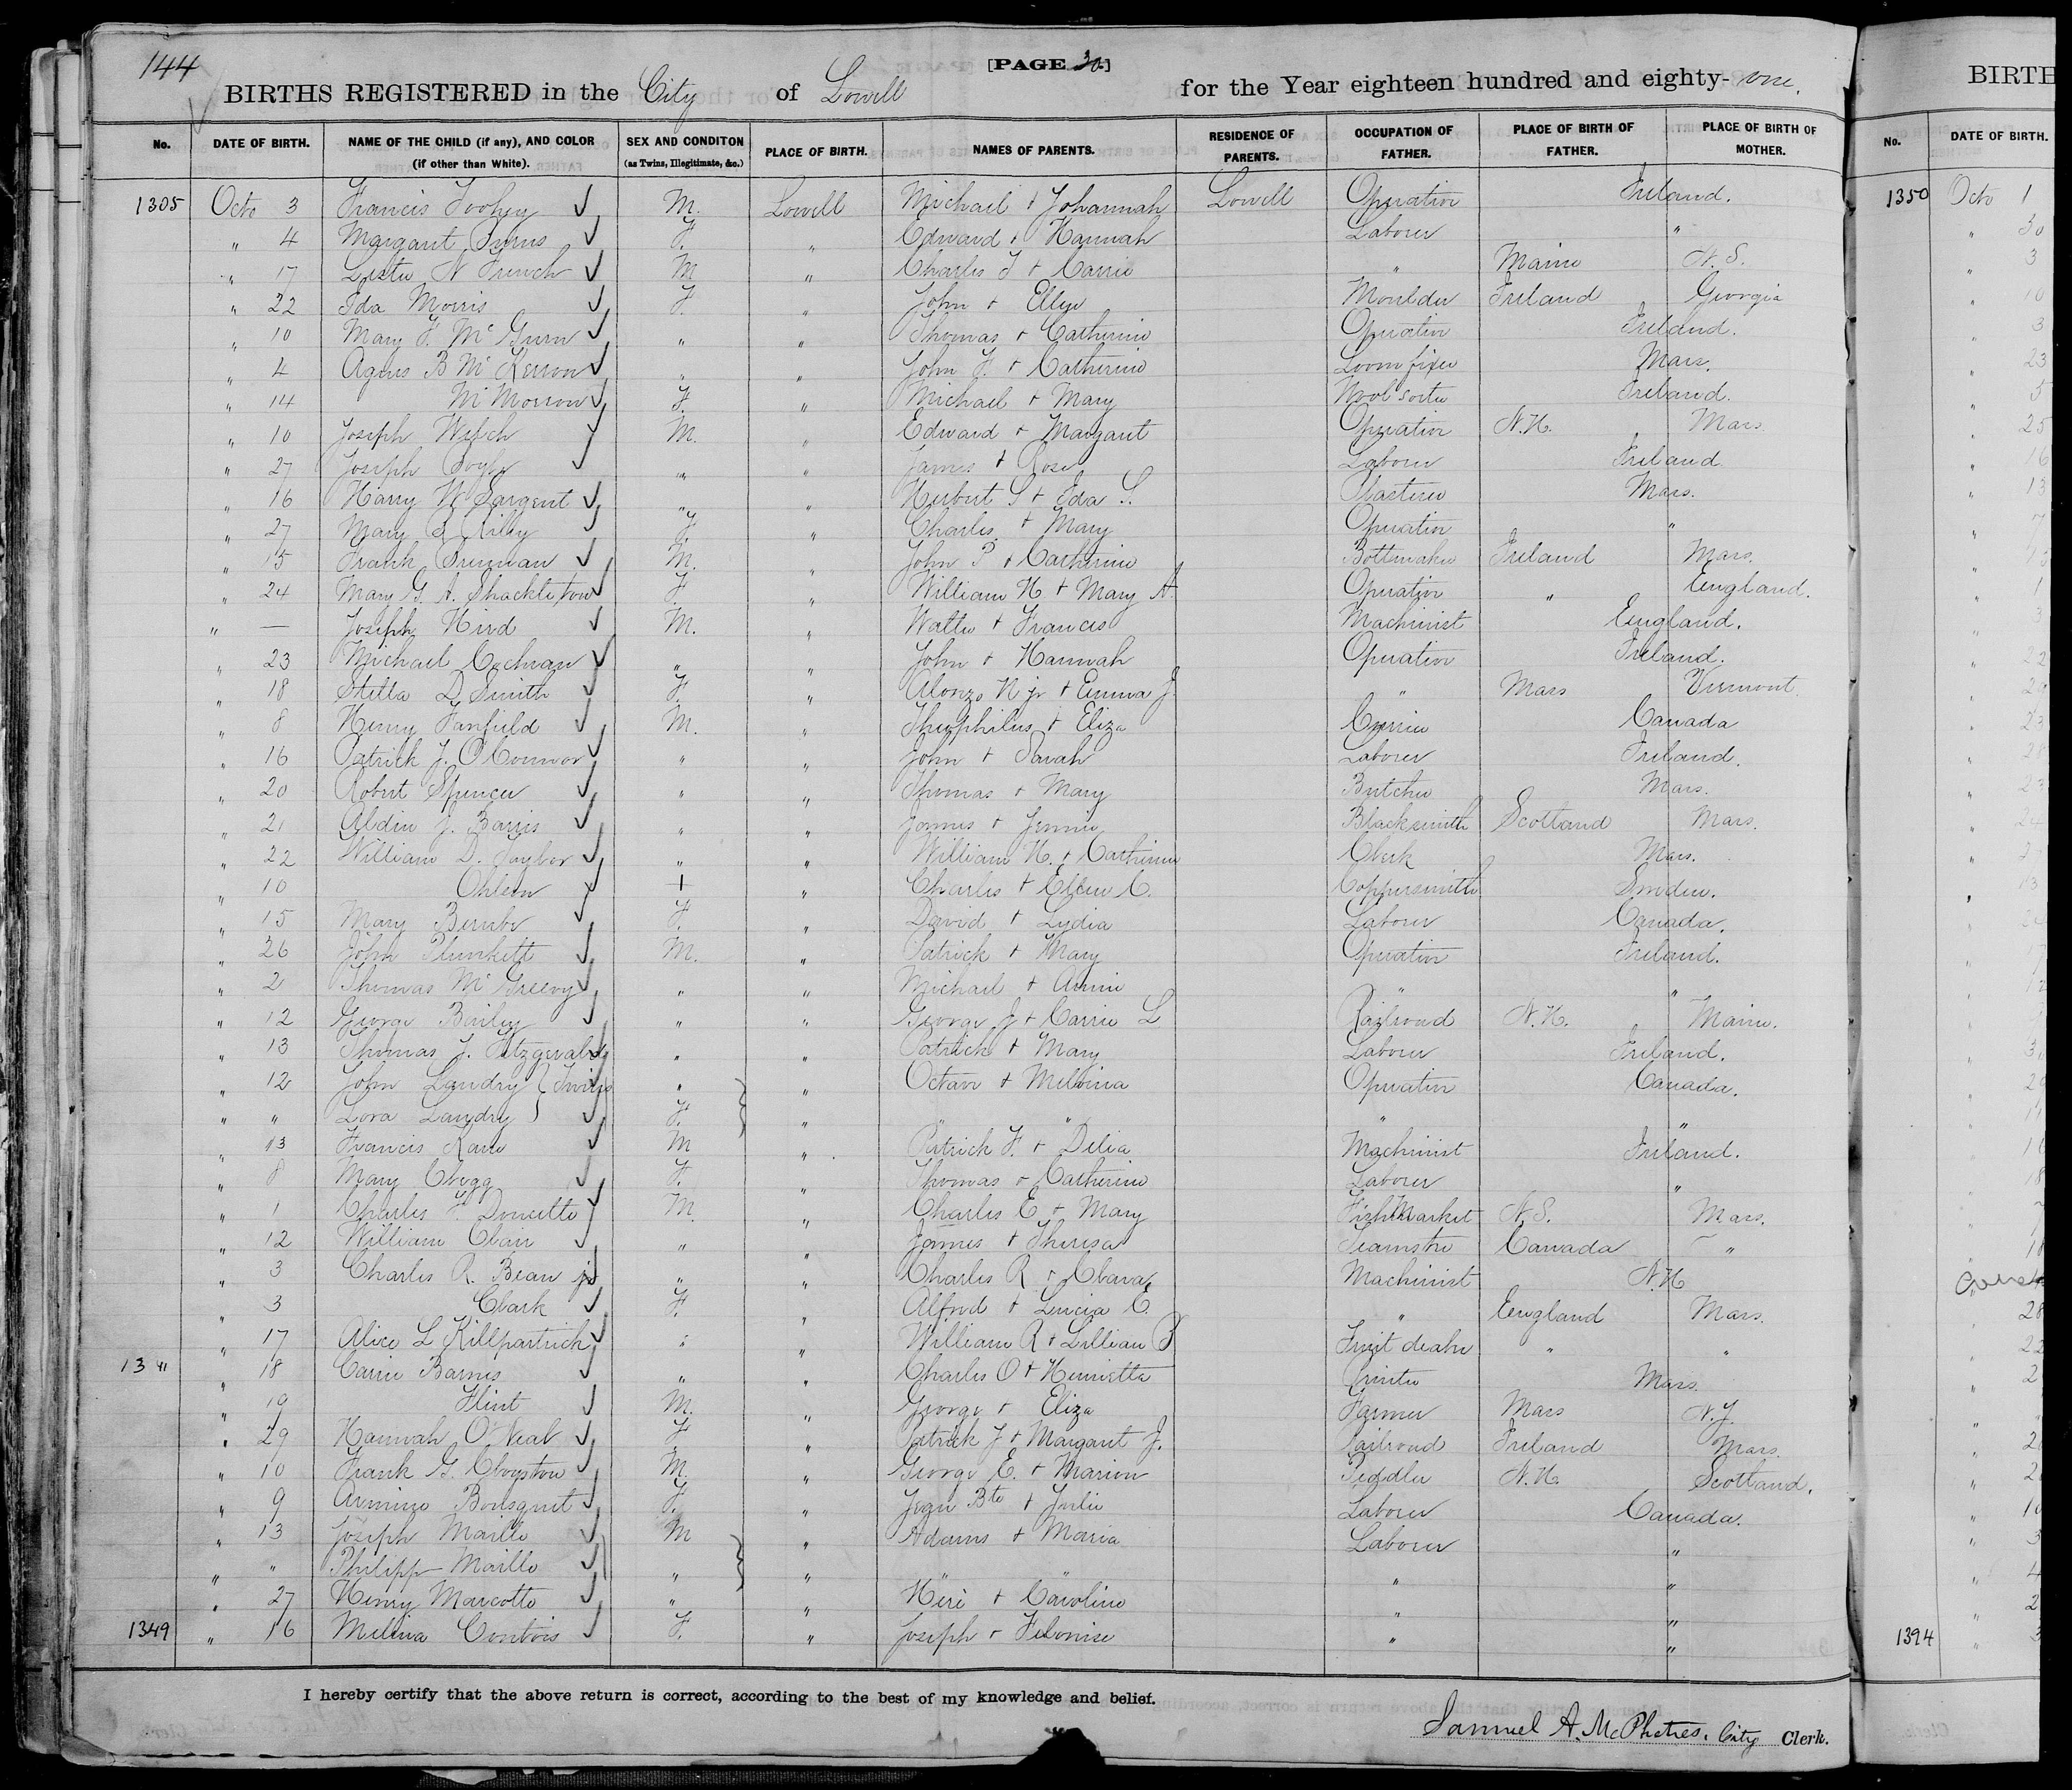 144
[PAGE 30.]
BIRTHS REGISTERED in the City of Lowell for the Year eighteen hundred and eighty-one.
No. DATE OF BIRTH. NAME OF THE CHILD (if any), AND COLOR (if other than White). SEX AND CONDITON (as Twins, Illegitimate, &c.) PLACE OF BIRTH. NAMES OF PARENTS. RESIDENCE OF PARENTS. OCCUPATION OF FATHER. PLACE OF BIRTH OF FATHER. PLACE OF BIRTH OF MOTHER.
1305 Octo 3 Francis Toohey M. Lowell Michael + Johannah Lowell Operative Ireland.
" 4 Margaret Burns F. " Edward + Hannah Laborer "
" 17 Lester N French M " Charles F + Carrie " Maine N.S.
" 22 Ida Morris F. " John + Ellen Moulder Ireland Georgia
" 10 Mary F. Mc Gurn " " Thomas + Catherine Operative Ireland.
" 4 Agnes B Mc Kerron " " John F. + Catherine Loom fixer Mass.
" 14 Mc Morrow F. " Michael + Mary Wool Sorter Ireland.
" 10 Joseph Welch M. " Edward + Margaret Operative N.H. Mass.
" 27 Joseph Boyle " " James + Rose Laborer Ireland
" 16 Harry W Sargent " " Herbert S + Eda S. Plasterer Mass.
" 27 Mary Riley F. " Charles + Mary Operative "
" 15 Frank Brennan M. " John P + Catherine Ireland Mass.
" 24 Mary G. A. Shackleton F. " William H + Mary A. Operative " England.
" — Joseph Hird M. " Walter + Frances Machinist England.
" 23 Michael Cochran " " John + Hannah Operative Ireland.
" 18 Stella D Smith F. " Alonzo N jr + Emma J. " Mass Vermont.
" 8 Henry Fanfield M. " Theophilus + Eliza Currier Canada
" 16 Patrick J. O'Connor " " John + Sarah Laborer Ireland.
" 20 Robert Spencer " " Thomas + Mary Butcher Mass.
" 21 Aldin J. Barris " " James + Jennie Blacksmith Scotland Mass.
" 22 William D. Taylor " " William H. + Catherine Clerk Mass.
" 10 Ohlson + " Charles + Ellen C. Coppersmith Sweden.
" 15 Mary Berube F. " David + Lydia Laborer Canada.
" 26 John Plunkett M. " Patrick + Mary Operative Ireland.
" 2 Thomas Mc Greevy " " Michael + Annie " "
" 12 George Bailey " " George J + Carrie L Railroad N.H. Maine.
" 13 Thomas J. Fitzgerald " " Patrick + Mary Laborer Ireland.
" 12 John Landry } Twins " " Octave + Melvina Operative Canada.
" " Lora Landry } F. " " " " "
" 13 Francis Kane M " Patrick F. + Delia Machinist Ireland.
" 8 Mary Clegg F. " Thomas + Catherine Laborer "
" 1 Charles F. Doucette M. " Charles E + Mary Fish Market N.S. Mass.
" 12 William Clair " " James + Theresa Teamster Canada "
" 3 Charles R. Bean jr " " Charles R + Clara Machinist N.H
" 3 Clark F. " Alfred + Lucia E. " England Mass.
" 17 Alice L Killpartrick " " William R + Lillian B Fruit dealer " "
1341 " 18 Carrie Barnes " " Charles O + Henrietta Printer Mass.
" 19 Flint M. " George + Eliza Farmer Mass N.Y.
" 29 Hannah O'Neal F " Patrick J + Margaret J. Railroad Ireland Mass.
" 10 Frank G. Cloyston M. " George E. + Marion Peddler N.H. Scotland.
" 9 Bousquet F. " Jean Bte + Julie Laborer Canada.
" 13 Joseph Maille M " Adams + Maria Laborer "
" " Philipp Maille " " " " " "
" 27 Henry Marcotte " " Héré + Caroline " "
1349 " 16 Melina Contois F. " Joseph + Felonise " "
I hereby certify that the above return is correct, according to the best of my knowledge and belief.
Samuel A. McPhetres, City Clerk.
BIRTH
No. DATE OF BIRTH.
1350 Octo 1
" 30
" 3
" 10
" 3
" 23
" 5
" 25
" 16
" 13
1394